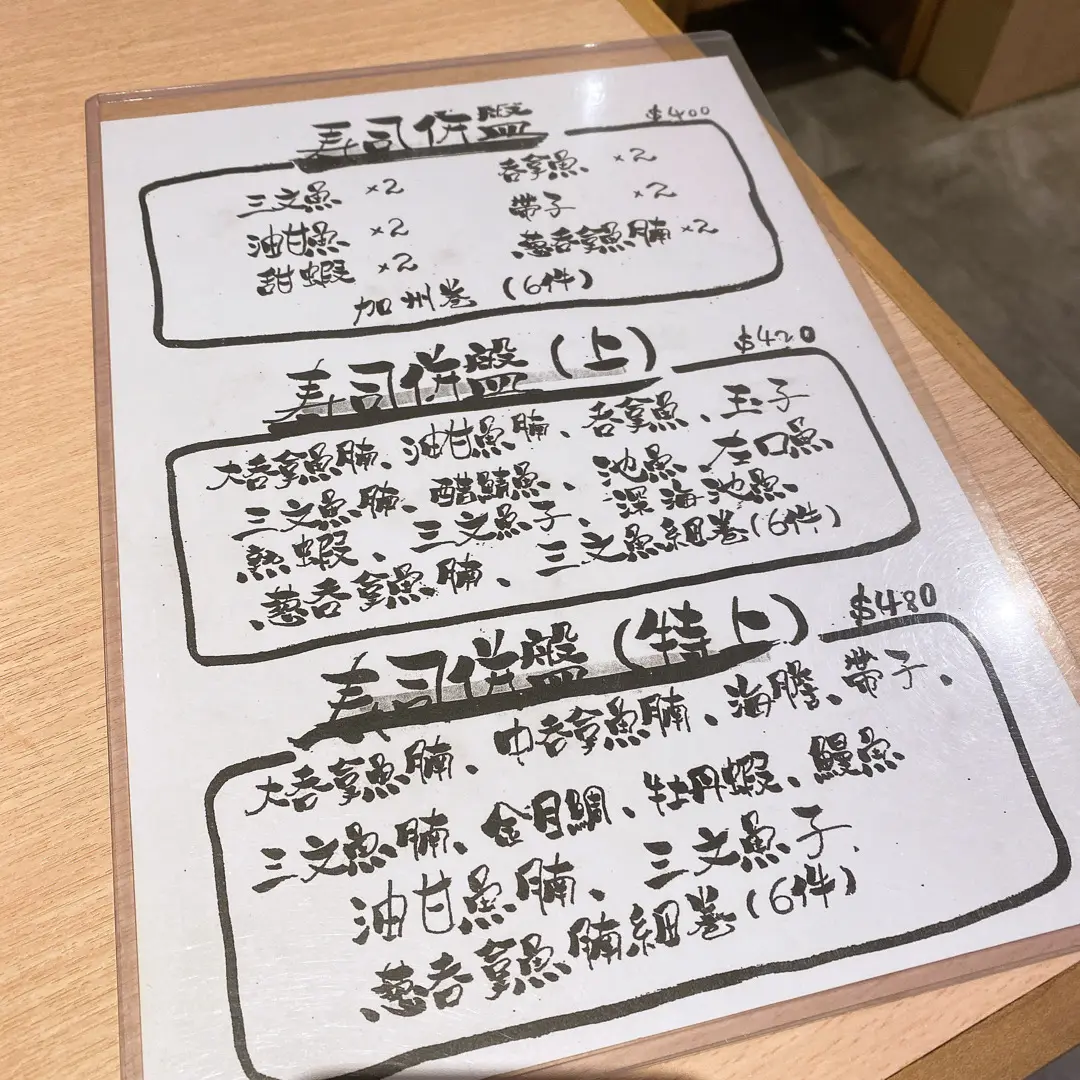 寿司併盤 $400
三文魚 ×2 吞拿魚 ×2
油甘魚 ×2 帶子 ×2
甜蝦 ×2 葱吞拿魚腩 ×2
加州卷 (6件)
寿司併盤(上) $420
大吞拿魚腩、油甘魚腩、吞拿魚、玉子
三文魚腩、醋鯖魚、池魚、左口魚
熟蝦、三文魚子、深海池魚
葱吞拿魚腩、三文魚細卷(6件)
寿司併盤(特上) $480
大吞拿魚腩、中吞拿魚腩、海膽、帶子、
三文魚腩、金目鯛、牡丹蝦、鰻魚
油甘魚腩、三文魚子、
葱吞拿魚腩細卷(6件)